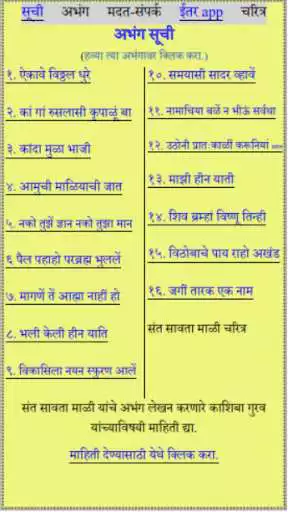 सूची अभंग मदत-संपर्क ईतर app चरित्र
अभंग सूची
(हव्या त्या अभंगावर क्लिक करा.)
१. ऐकावे विठ्ठल धुरे
२. कां गां रुसलासी कृपाळूं बा
३. कांदा मुळा भाजी
४. आमुची माळियाची जात
५. नको तुझें ज्ञान नको तुझा मान
६ पैल पहाहो परब्रह्म भुललें
७. मागणें तें आह्मा नाहीं हो
८. भली केली हीन याति
९. विकासिला नयन स्फुरण आलें
१०. समयासी सादर व्हावें
११. नामाचिया बळें न भीऊं सर्वथा
१२. उठोनी प्रातःकाळीं करूनियां
१३. माझी हीन याती
१४. शिव ब्रम्हां विष्णु तिन्ही
१५. विठोबाचे पाय राहो अखंड
१६. जगीं तारक एक नाम
संत सावता माळी चरित्र
संत सावता माळी यांचे अभंग लेखन करणारे काशिबा गुरव
यांच्याविषयी माहिती द्या.
माहिती देण्यासाठी येथे क्लिक करा.